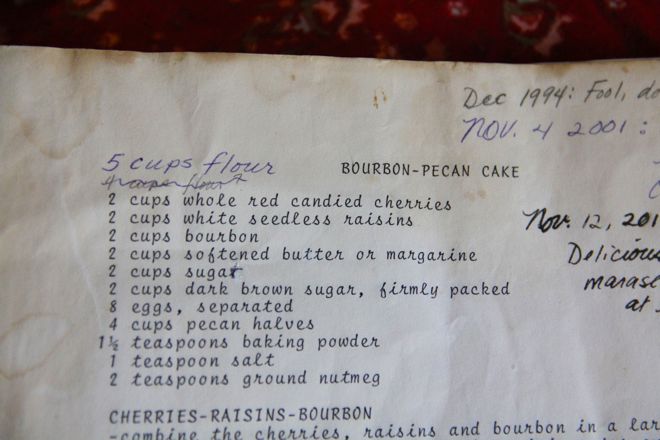 Dec 1994: Fool, do
NOV. 4 2001:
5 cups flour
BOURBON-PECAN CAKE
2 cups whole red candied cherries
2 cups white seedless raisins
Nov. 12, 201
2 cups bourbon
2 cups softened butter or margarine
Delicious
2 cups sugar
2 cups dark brown sugar, firmly packed
marasc
8 eggs, separated
at
4 cups pecan halves
1½ teaspoons baking powder
1 teaspoon salt
2 teaspoons ground nutmeg
CHERRIES-RAISINS-BOURBON
-combine the cherries, raisins and bourbon in a lar